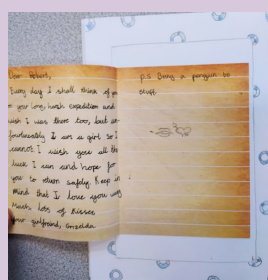 Dear Robert,
Every day I shall think of you
on your long, harsh expedition and
wish I was there too, but un-
fortunately I am a girl so I
cannot. I wish you all the
luck I can and hope for
you to return safely. Keep in
mind that I love you very
much. Lots of kisses
your girlfriend, Griselda
p.s Bring a penguin to
stuff